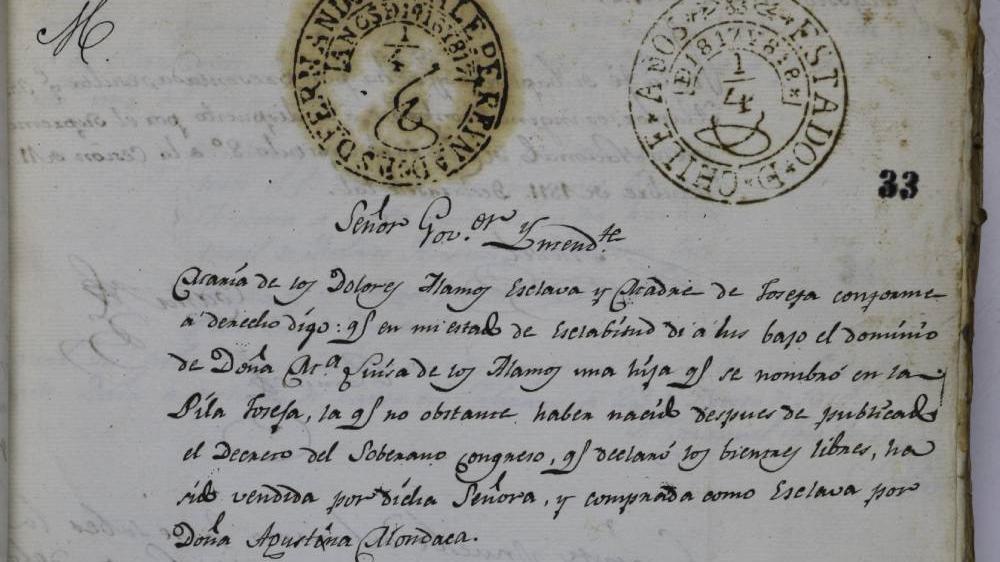 M.
VALE DE REYNAD ES D FERNANDO
LAÑOS D 1816 Y 1817
1/4
ESTADO D CHILE AÑOS
D 1817 Y 818
1/4
33
Señor Gov.or Yntend.te
Maria de los Dolores Alamos Esclava y Madre de Josefa conforme
a derecho digo: qe en mi estado de Esclabitud di a lus bajo el dominio
de Doña Ma. Luisa de los Alamos una hija qe se nombró en la
Pila Josefa, la qe no obstante haber nacido despues de publicado
el Decreto del Soberano Congreso, qe declaró los bientres libres, ha
sido vendida por dicha Señora, y comprada como Esclava por
Doña Agustina Mondaca.